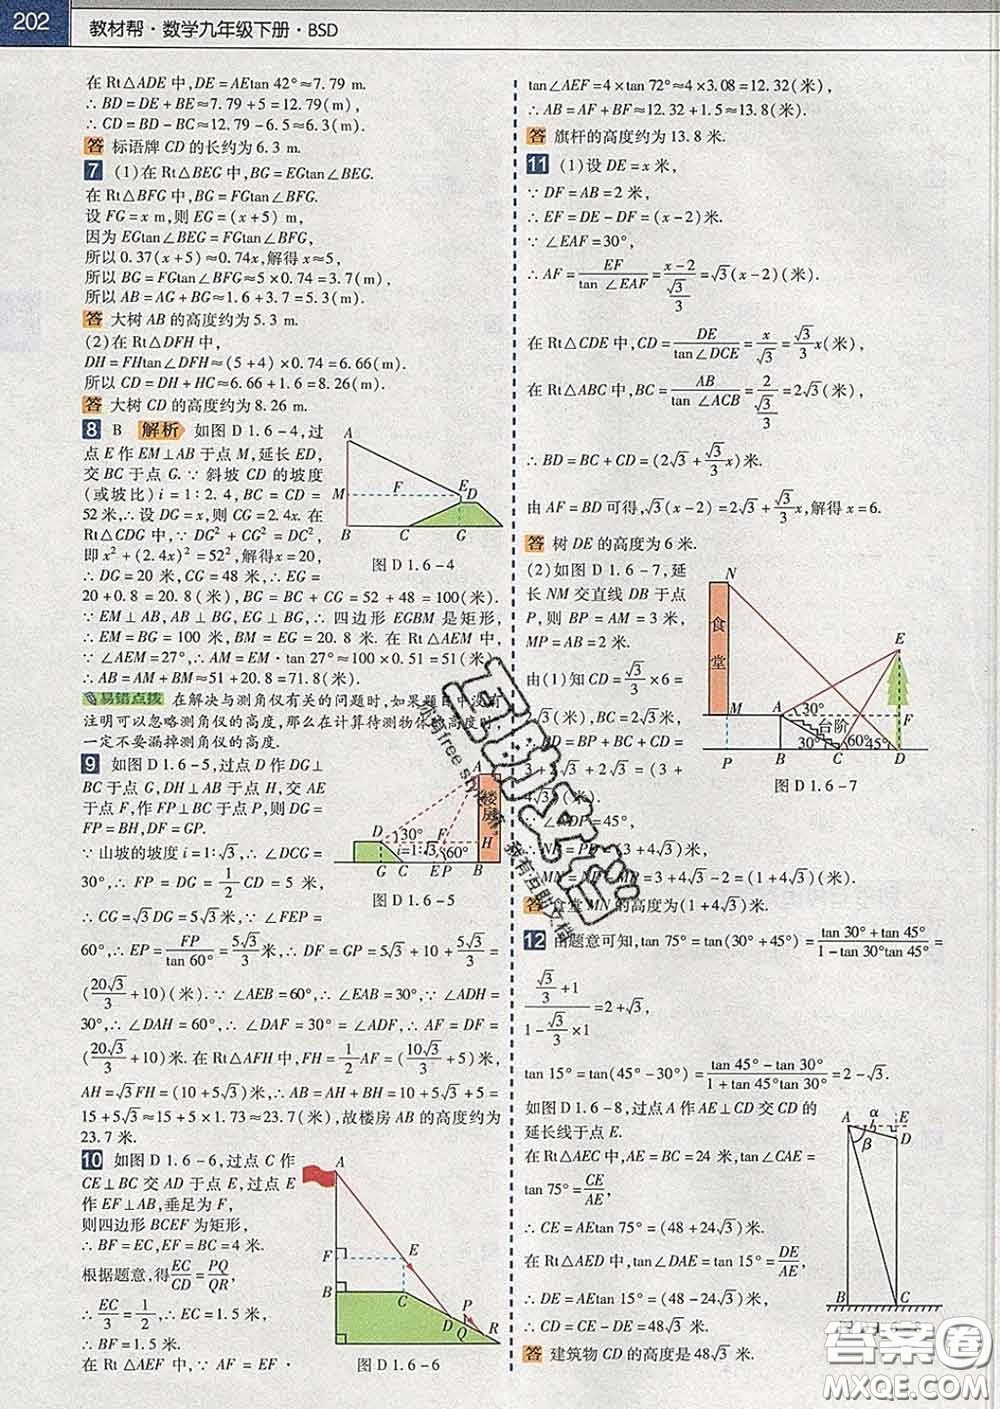 202
教材帮·数学九年级下册·BSD
在 Rt△ADE 中,DE=AEtan 42°≈7.79 m.
∴ BD=DE+BE≈7.79+5=12.79(m),
∴ CD=BD-BC≈12.79-6.5≈6.3(m).
答 标语牌 CD 的长约为 6.3 m.
7 (1)在 Rt△BEG 中,BG=EGtan∠BEG.
在 Rt△BFG 中,BG=FGtan∠BFG.
设 FG=x m,则 EG=(x+5) m,
因为 EGtan∠BEG=FGtan∠BFG,
所以 0.37(x+5)≈0.74x,解得 x≈5,
所以 BG=FGtan∠BFG≈5×0.74=3.7(m),
所以 AB=AG+BG≈1.6+3.7=5.3(m).
答 大树 AB 的高度约为 5.3 m.
(2)在 Rt△DFH 中,
DH=FHtan∠DFH≈(5+4)×0.74=6.66(m).
所以 CD=DH+HC≈6.66+1.6=8.26(m).
答 大树 CD 的高度约为 8.26 m.
8 B 解析 如图 D 1.6-4,过
点 E 作 EM⊥AB 于点 M,延长 ED,
交 BC 于点 G. ∵ 斜坡 CD 的坡度
(或坡比) i=1:2.4, BC=CD=
52 米,∴ 设 DG=x,则 CG=2.4x. 在
Rt△CDG 中,∵ DG²+CG²=DC²,
即 x²+(2.4x)²=52²,解得 x=20,
∴ DG=20 米,CG=48 米,∴ EG=
20+0.8=20.8(米),BG=BC+CG=52+48=100(米).
∵ EM⊥AB,AB⊥BG,EG⊥BG,∴ 四边形 EGBM 是矩形,
∴ EM=BG=100 米,BM=EG=20.8 米. 在 Rt△AEM 中,
∵ ∠AEM=27°,∴ AM=EM·tan 27°≈100×0.51=51(米),
∴ AB=AM+BM≈51+20.8=71.8(米).
易错点拨 在解决与测角仪有关的问题时,如果题目中没有
注明可以忽略测角仪的高度,那么在计算待测物体的高度时,
一定不要漏掉测角仪的高度.
A
M
F
E
D
B
C
G
图 D 1.6-4
9 如图 D 1.6-5,过点 D 作 DG⊥
BC 于点 G,DH⊥AB 于点 H,交 AE
于点 F,作 FP⊥BC 于点 P,则 DG=
FP=BH,DF=GP.
∵ 山坡的坡度 i=1:√3,∴ ∠DCG=
30°,∴ FP=DG=1/2 CD=5 米,
∴ CG=√3DG=5√3 米,∵ ∠FEP=
60°,∴ EP=FP/tan 60°=5√3/3 米,∴ DF=GP=5√3+10+5√3/3=
(20√3/3+10)(米). ∵ ∠AEB=60°,∴ ∠EAB=30°,∵ ∠ADH=
30°,∴ ∠DAH=60°,∴ ∠DAF=30°=∠ADF,∴ AF=DF=
(20√3/3+10)米. 在 Rt△AFH 中,FH=1/2 AF=(10√3/3+5)米,
AH=√3FH=(10+5√3)米,∴ AB=AH+BH=10+5√3+5=
15+5√3≈15+5×1.73≈23.7(米),故楼房 AB 的高度约为
23.7 米.
A
楼房
D
30°
F
H
i=1:√3
60°
G
C
E
P
B
图 D 1.6-5
10 如图 D 1.6-6,过点 C 作
CE⊥BC 交 AD 于点 E,过点 E
作 EF⊥AB,垂足为 F,
则四边形 BCEF 为矩形,
∴ BF=EC,EF=BC=4 米.
根据题意,得EC/CD=PQ/QR,
∴ EC/3=1/2,∴ EC=1.5 米,
∴ BF=1.5 米.
在 Rt△AEF 中,∵ AF=EF·
A
F
E
B
C
D
P
Q
R
图 D 1.6-6
tan∠AEF=4×tan 72°≈4×3.08=12.32(米),
∴ AB=AF+BF≈12.32+1.5≈13.8(米).
答 旗杆的高度约为 13.8 米.
11 (1)设 DE=x 米,
∵ DF=AB=2 米,
∴ EF=DE-DF=(x-2)米.
∵ ∠EAF=30°,
∴ AF=EF/tan ∠EAF=(x-2)/(√3/3)=√3(x-2)(米).
在 Rt△CDE 中,CD=DE/tan∠DCE=x/√3=√3/3 x(米),
在 Rt△ABC 中,BC=AB/tan ∠ACB=2/(√3/3)=2√3(米),
∴ BD=BC+CD=(2√3+√3/3 x)米.
由 AF=BD 可得,√3(x-2)=2√3+√3/3 x,解得 x=6.
答 树 DE 的高度为 6 米.
(2)如图 D 1.6-7,延
长 NM 交直线 DB 于点
P,则 BP=AM=3 米,
MP=AB=2 米.
由(1)知 CD=√3/3×6=
2√3(米),BC=2√3 米,
∴ BD=BP+BC+CD=
3+2√3+2√3=(3+
4√3)(米).
∵ ∠NDP=45°,
∴ NP=PD=(3+4√3)米,
∴ MN=NP-MP=3+4√3-2=(1+4√3)(米).
答 食堂 MN 的高度为(1+4√3)米.
N
食堂
E
M
A
30°
F
台阶
30°
60°
45°
P
B
C
D
图 D 1.6-7
12 由题意可知,tan 75°=tan(30°+45°)=(tan 30°+tan 45°)/(1-tan 30°tan 45°)=
(√3/3+1)/(1-√3/3×1)=2+√3,
tan 15°=tan(45°-30°)=(tan 45°-tan 30°)/(1+tan 45°tan 30°)=2-√3.
如图 D 1.6-8,过点 A 作 AE⊥CD 交 CD 的
延长线于点 E.
在 Rt△AEC 中,AE=BC=24 米,tan∠CAE=
tan 75°=CE/AE,
∴ CE=AEtan 75°=(48+24√3)米.
在 Rt△AED 中,∵ tan∠DAE=tan 15°=DE/AE,
∴ DE=AEtan 15°=(48-24√3)米,
∴ CD=CE-DE=48√3 米.
答 建筑物 CD 的高度是 48√3 米.
A
α
E
β
D
B
C
互助文档
答案圈
MXQE.COM